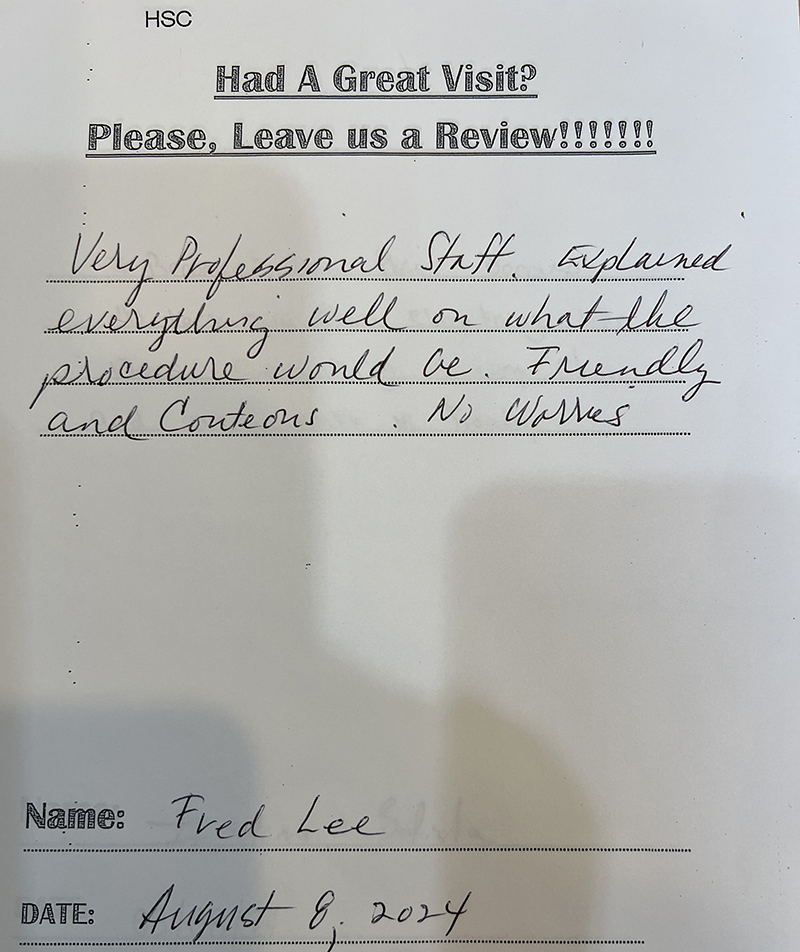 HSC
Had A Great Visit?
Please, Leave us a Review!!!!!!!
Very Professional Staff. Explained
everything well on what the
procedure would be. Friendly
and Conteous . No Worries
Name: Fred Lee
DATE: August 8, 2024